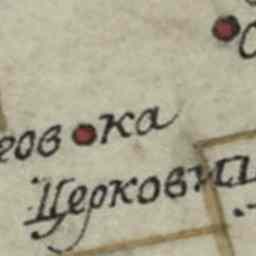 говка
Церкови